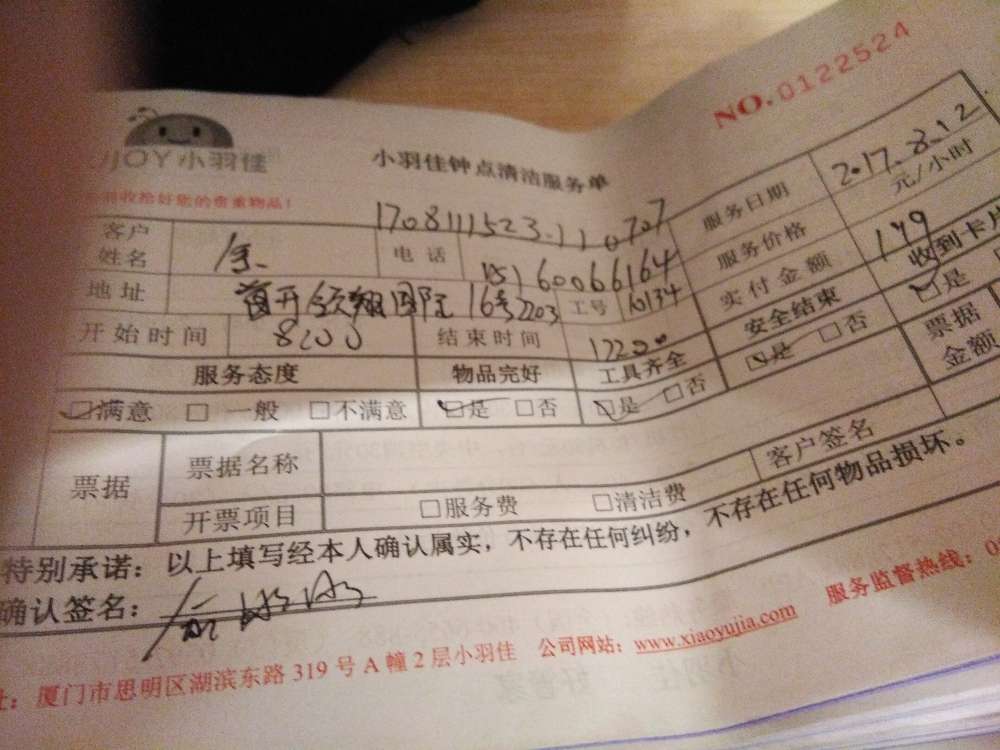 NO.0122524
JOY 小羽佳
小羽佳钟点清洁服务单
收拾好您的贵重物品!
1708111523-110707
服务日期 2017.8.12
客户姓名 电话 15160066164 服务价格 元/小时
地址 首开领翔国际 16号2203 工号 10134 实付金额 149 收到卡片
开始时间 8:00 结束时间 12:00 安全结束 □是
服务态度 物品完好 工具齐全 □是 □否 票据金额
□满意 □一般 □不满意 □是 □否 □是 □否
票据 票据名称 客户签名
开票项目 □服务费 □清洁费
特别承诺:以上填写经本人确认属实,不存在任何纠纷,不存在任何物品损坏。
确认签名:
址:厦门市思明区湖滨东路319号A幢2层小羽佳 公司网站:www.xiaoyujia.com 服务监督热线: